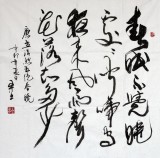 春眠不觉晓
处处闻啼鸟
夜来风雨声
花落知多少
唐孟浩然诗春晓